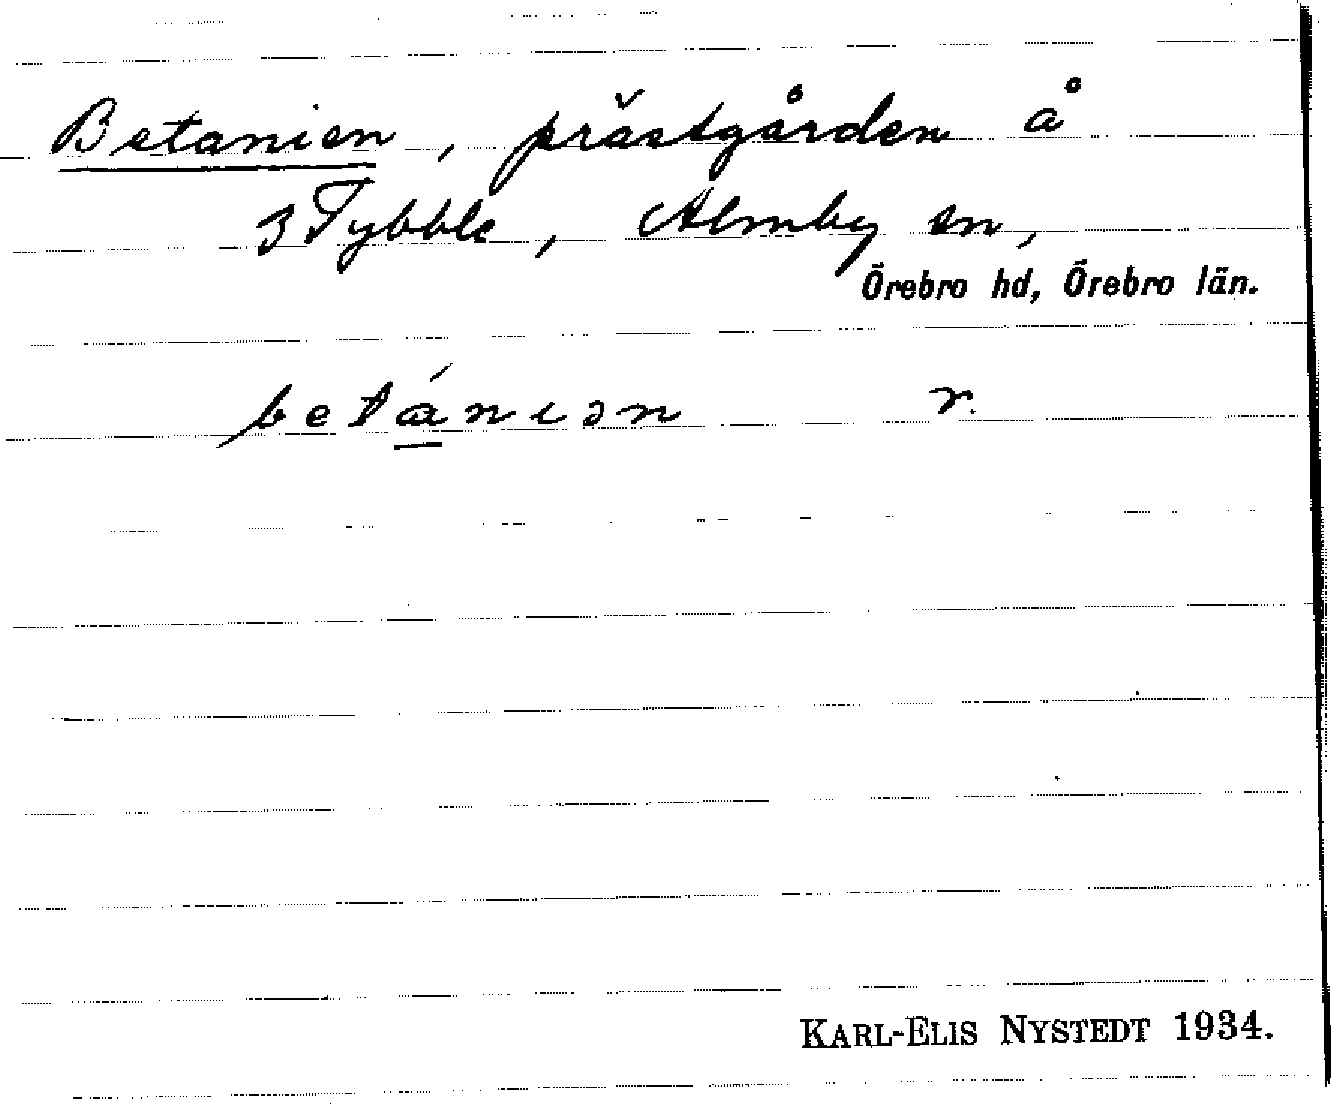 Betanien, prästgården å
3 Tybble, Almby sn,
Örebro hd, Örebro län.
betánıən r.
KARL-ELIS NYSTEDT 1934.